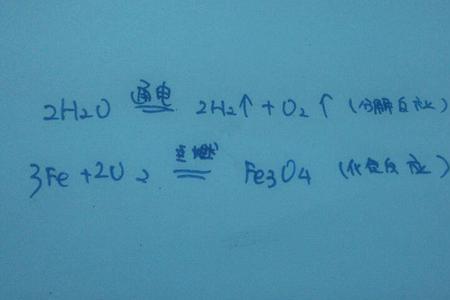 2H₂O 通电 2H₂↑+O₂↑ (分解反应)
3Fe+2O₂ 点燃 Fe₃O₄ (化合反应)